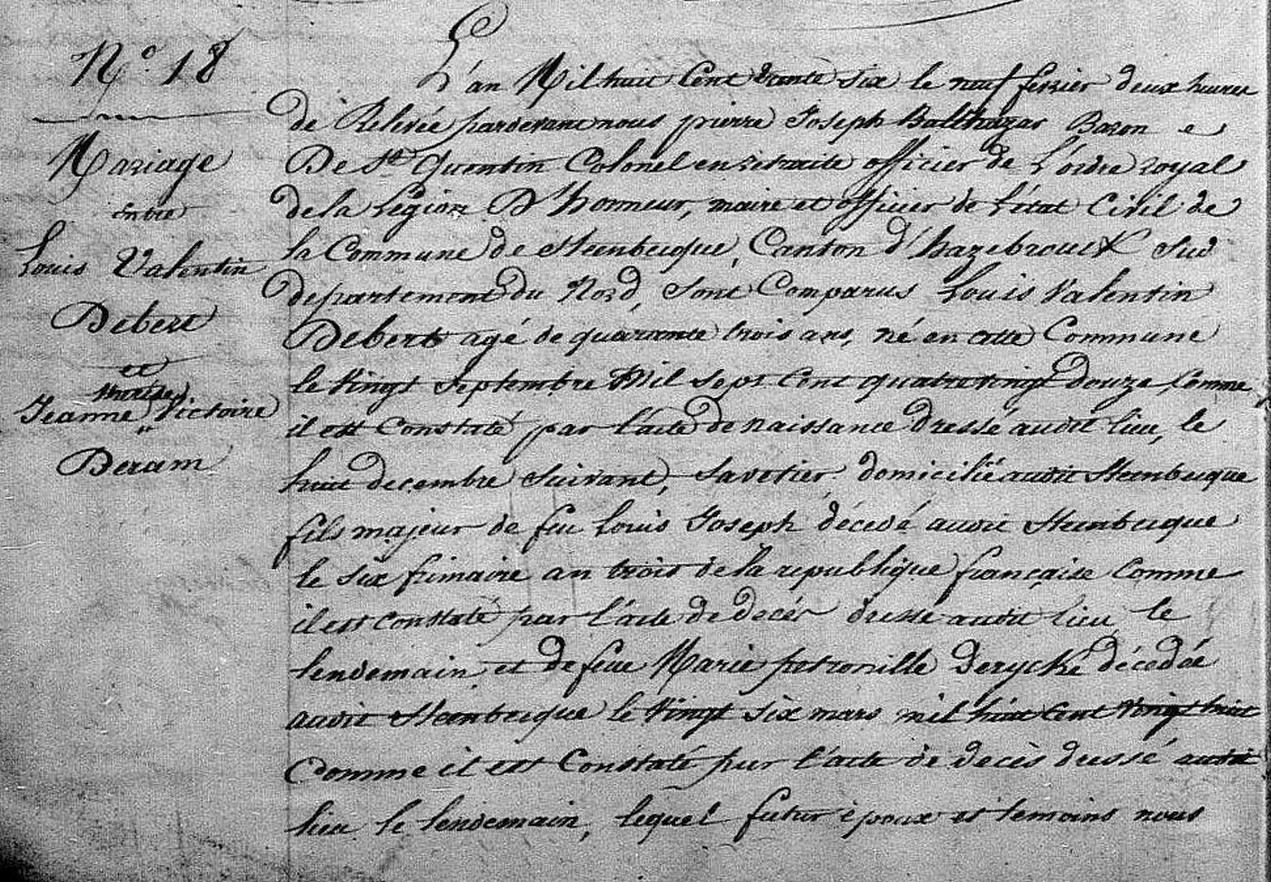 N.° 18
Mariage
entre
Louis Valentin
Debert
et
Thérèse
Jeanne Victoire
Deram
L'an Mil huit Cent trente six le neuf fevrier deux heures
de Relevée pardevant nous pierre Joseph Balthazar Baron
De St. Quentin Colonel en retraite officier de L'ordre royal
de la Légion D'honneur, maire et officier de l'état Civil de
la Commune de Steenbecque, Canton d'hazebrouck Sud
departement du Nord, sont Comparus Louis Valentin
Debert agé de quarante trois ans, né en cette Commune
le vingt Septembre Mil Sept Cent quatrevingt douze Comme
il est Constaté par l'acte de naissance dressé audit lieu, le
huit decembre suivant, Savetier domicilié audit Steenbecque
fils majeur de feu Louis Joseph décedé audit Steenbecque
le six frimaire an trois de la republique française Comme
il est constaté par l'acte de decès dressé audit lieu le
lendemain et de feue Marie petronille Derycke décedée
audit Steenbecque le vingt six mars mil huit cent vingt huit
Comme il est Constaté par l'acte de decès dressé audit
lieu le lendemain, lequel futur époux et temoins nous